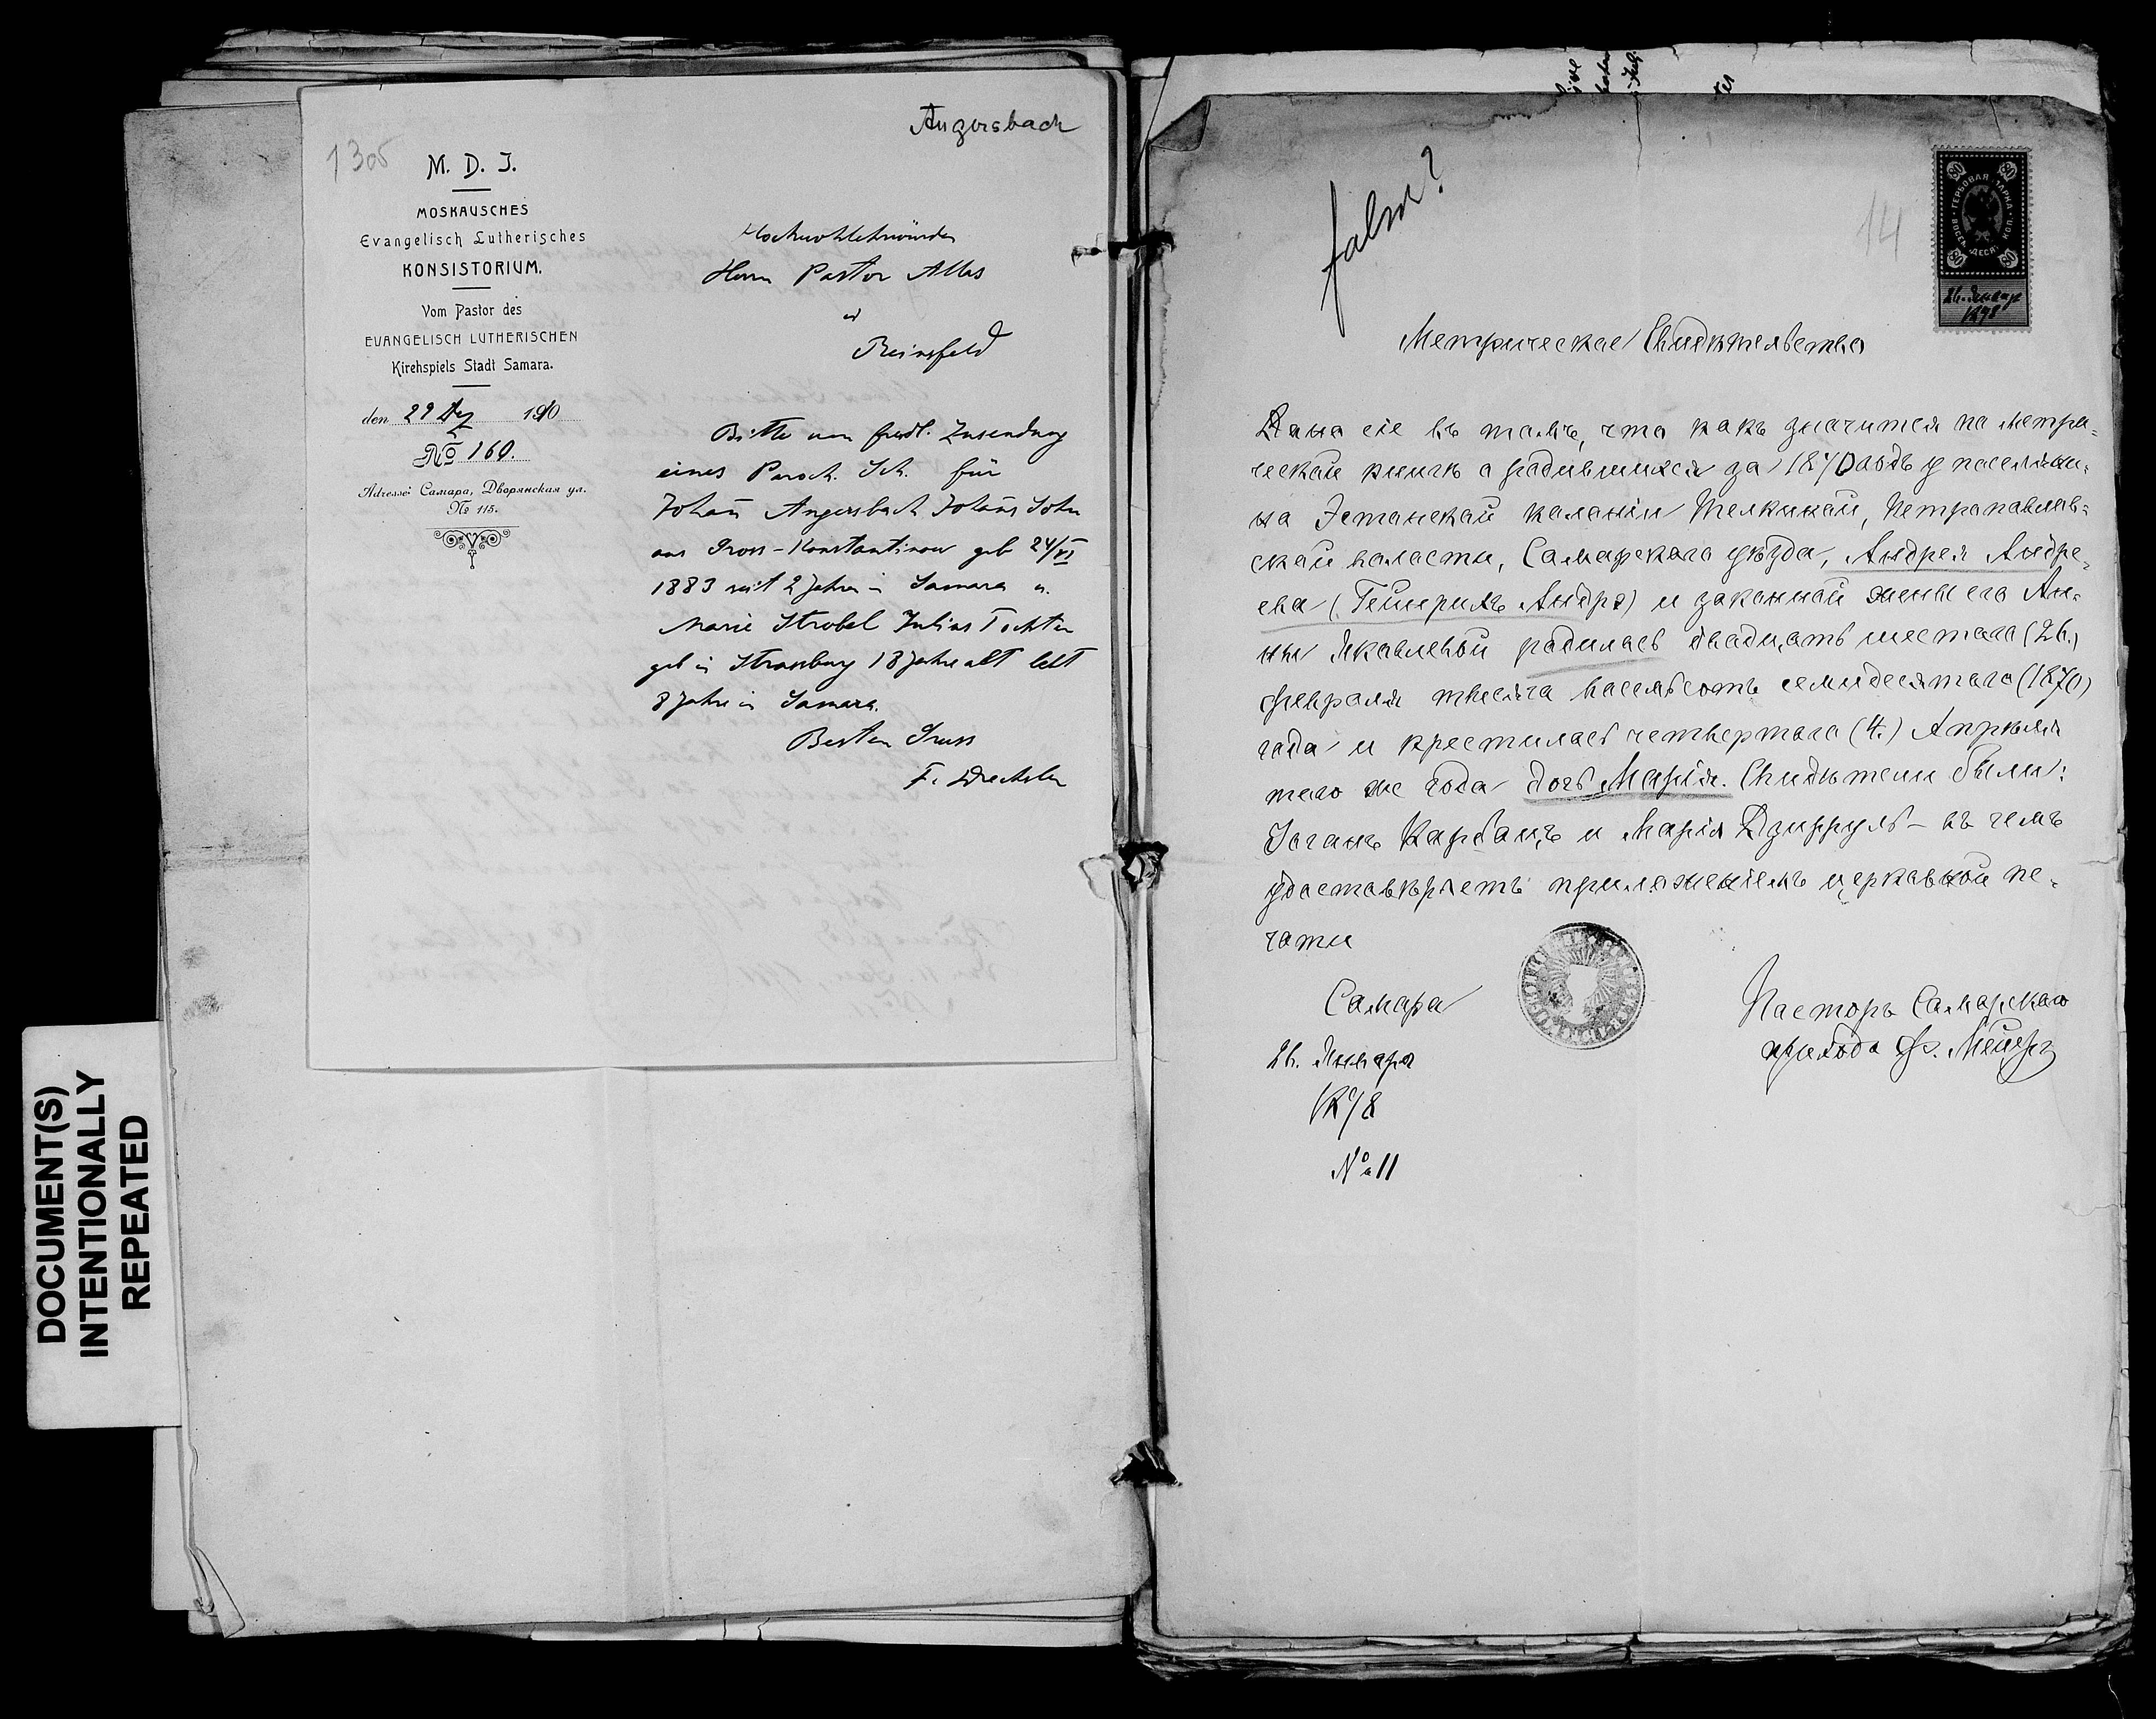 DOCUMENT(S)
INTENTIONALLY
REPEATED
1305
M. D. J.
MOSKAUSCHES
Evangelisch Lutherisches
KONSISTORIUM.
Vom Pastor des
EVANGELISCH LUTHERISCHEN
Kirchspiels Stadt Samara.
den 29 Dez 1910
№ 160.
Adresse: Самара, Дворянская ул.
№ 115.
Angersbach
Hochwohlehrwürden
Herrn Pastor Allas
in
Reinsfeld
Bitte um frndl. Zusendung
eines Paroch. Sch. für
Johan̄ Angersbach Johan̄s Sohn
aus Gross-Konstantinow geb 24/VI
1883 seit 2 Jahren in Samara u.
Marie Strobel Julius Tochter
geb in Strassburg 18 Jahre alt lebt
8 Jahre in Samara.
Besten Gruss
14
ГЕРБОВАЯ МАРКА
ВОСЕМЬДЕСЯТ КОП.
80
26. Января
1898
Метрическое Свидѣтельство
Дано сіе въ томъ, что какъ значится по метри-
ческой книгѣ о родившихся за 1870 годъ у поселяни-
на Эстонской колоніи Телкиной, Петропавлов-
ской волости, Самарскаго уѣзда, Андрея Андре-
ева (Гейнрихъ Андрэ) и законной жены его Ан-
ны Яковлевой родилась двадцать шестаго (26.)
Февраля тысяча восемьсотъ семидесятаго (1870)
года и крестилась четвертаго (4.) Апрѣля
того же года дочь Марія. Свидѣтели были:
Іоганъ Карбанъ и Марія Дзируль - въ чемъ
удостовѣряетъ приложеніемъ церковной пе-
чати
Самара
26. Января
1898
№ 11
Пасторъ Самарскаго
прихода Ф. Мейеръ